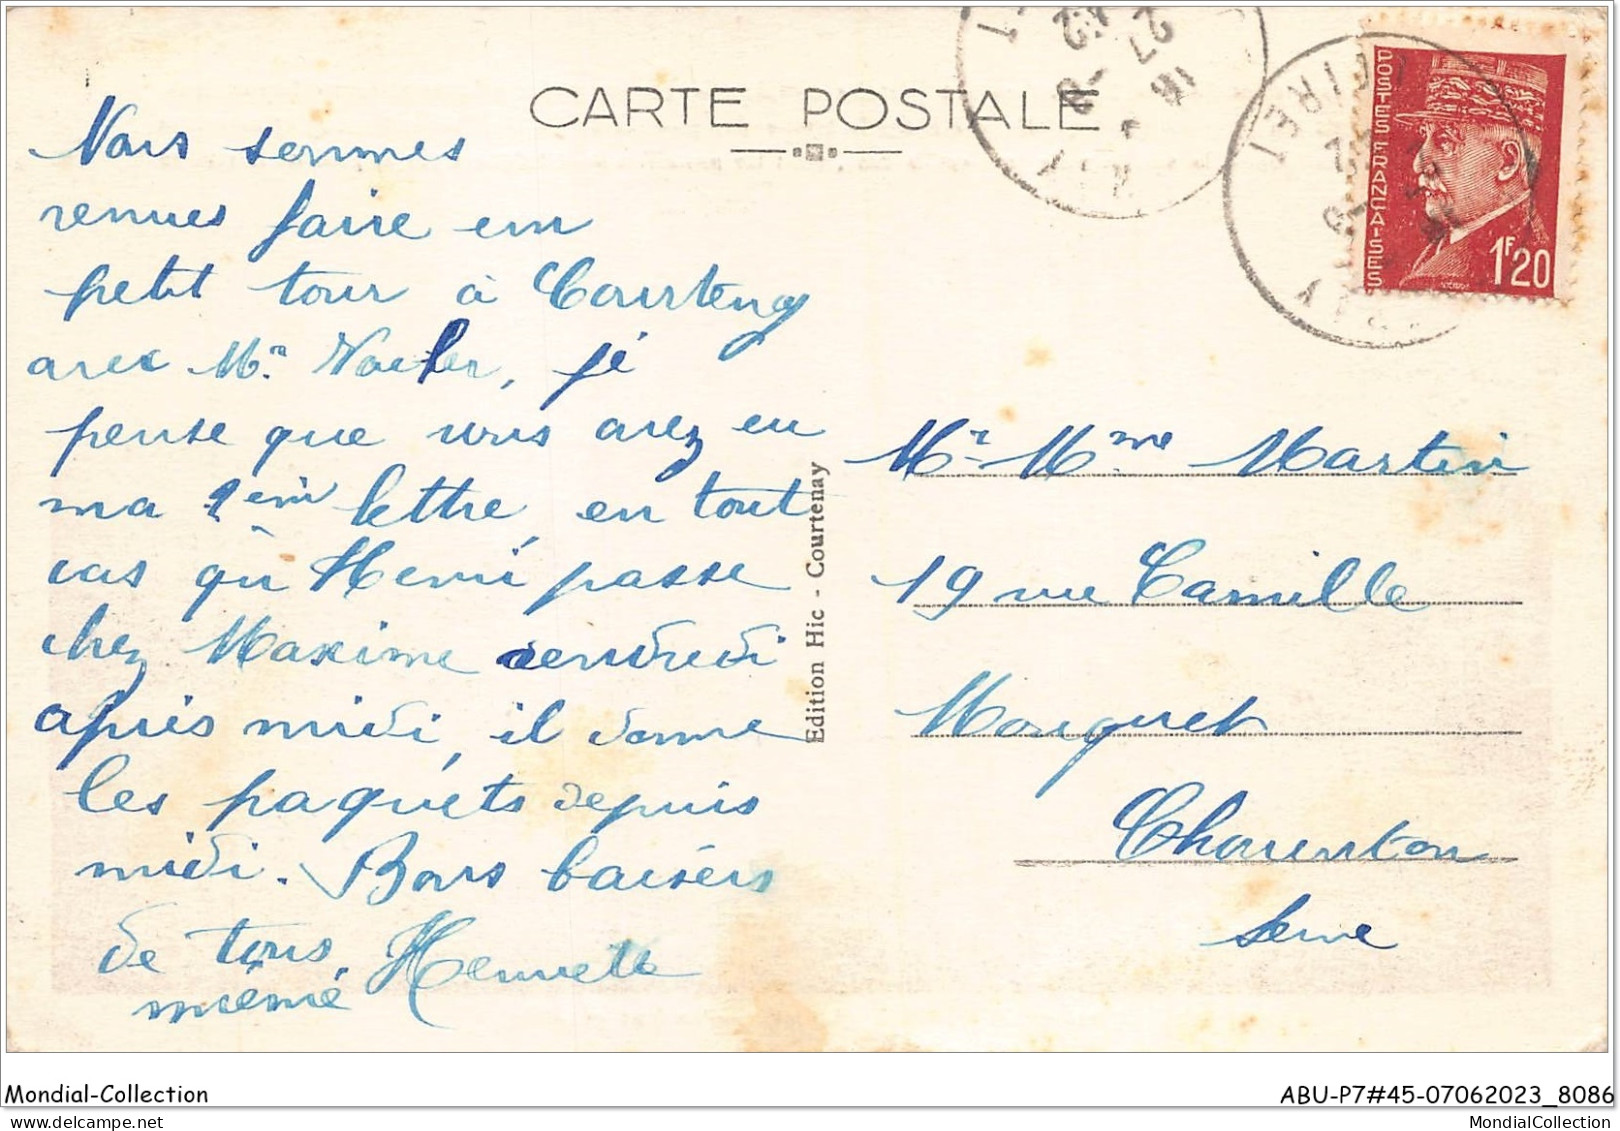 CARTE POSTALE
Nous sommes
venues faire un
petit tour à Courtenay
avec Mr. je
pense que vous avez eu
ma 1em lettre, en tout
cas qu' Henri passe
chez Maxime vendredi
après midi, il donne
les paquets depuis
midi. Bons baisers
de tous. Henriette
mémé
Edition Hic - Courtenay
Mr Mme Martin
19 rue Camille
Mouquet
Charenton
Seine
LOIRET
POSTES FRANÇAISES
1F20
Mondial-Collection
ABU-P7#45-07062023_8086
www.delcampe.net
MondialCollection